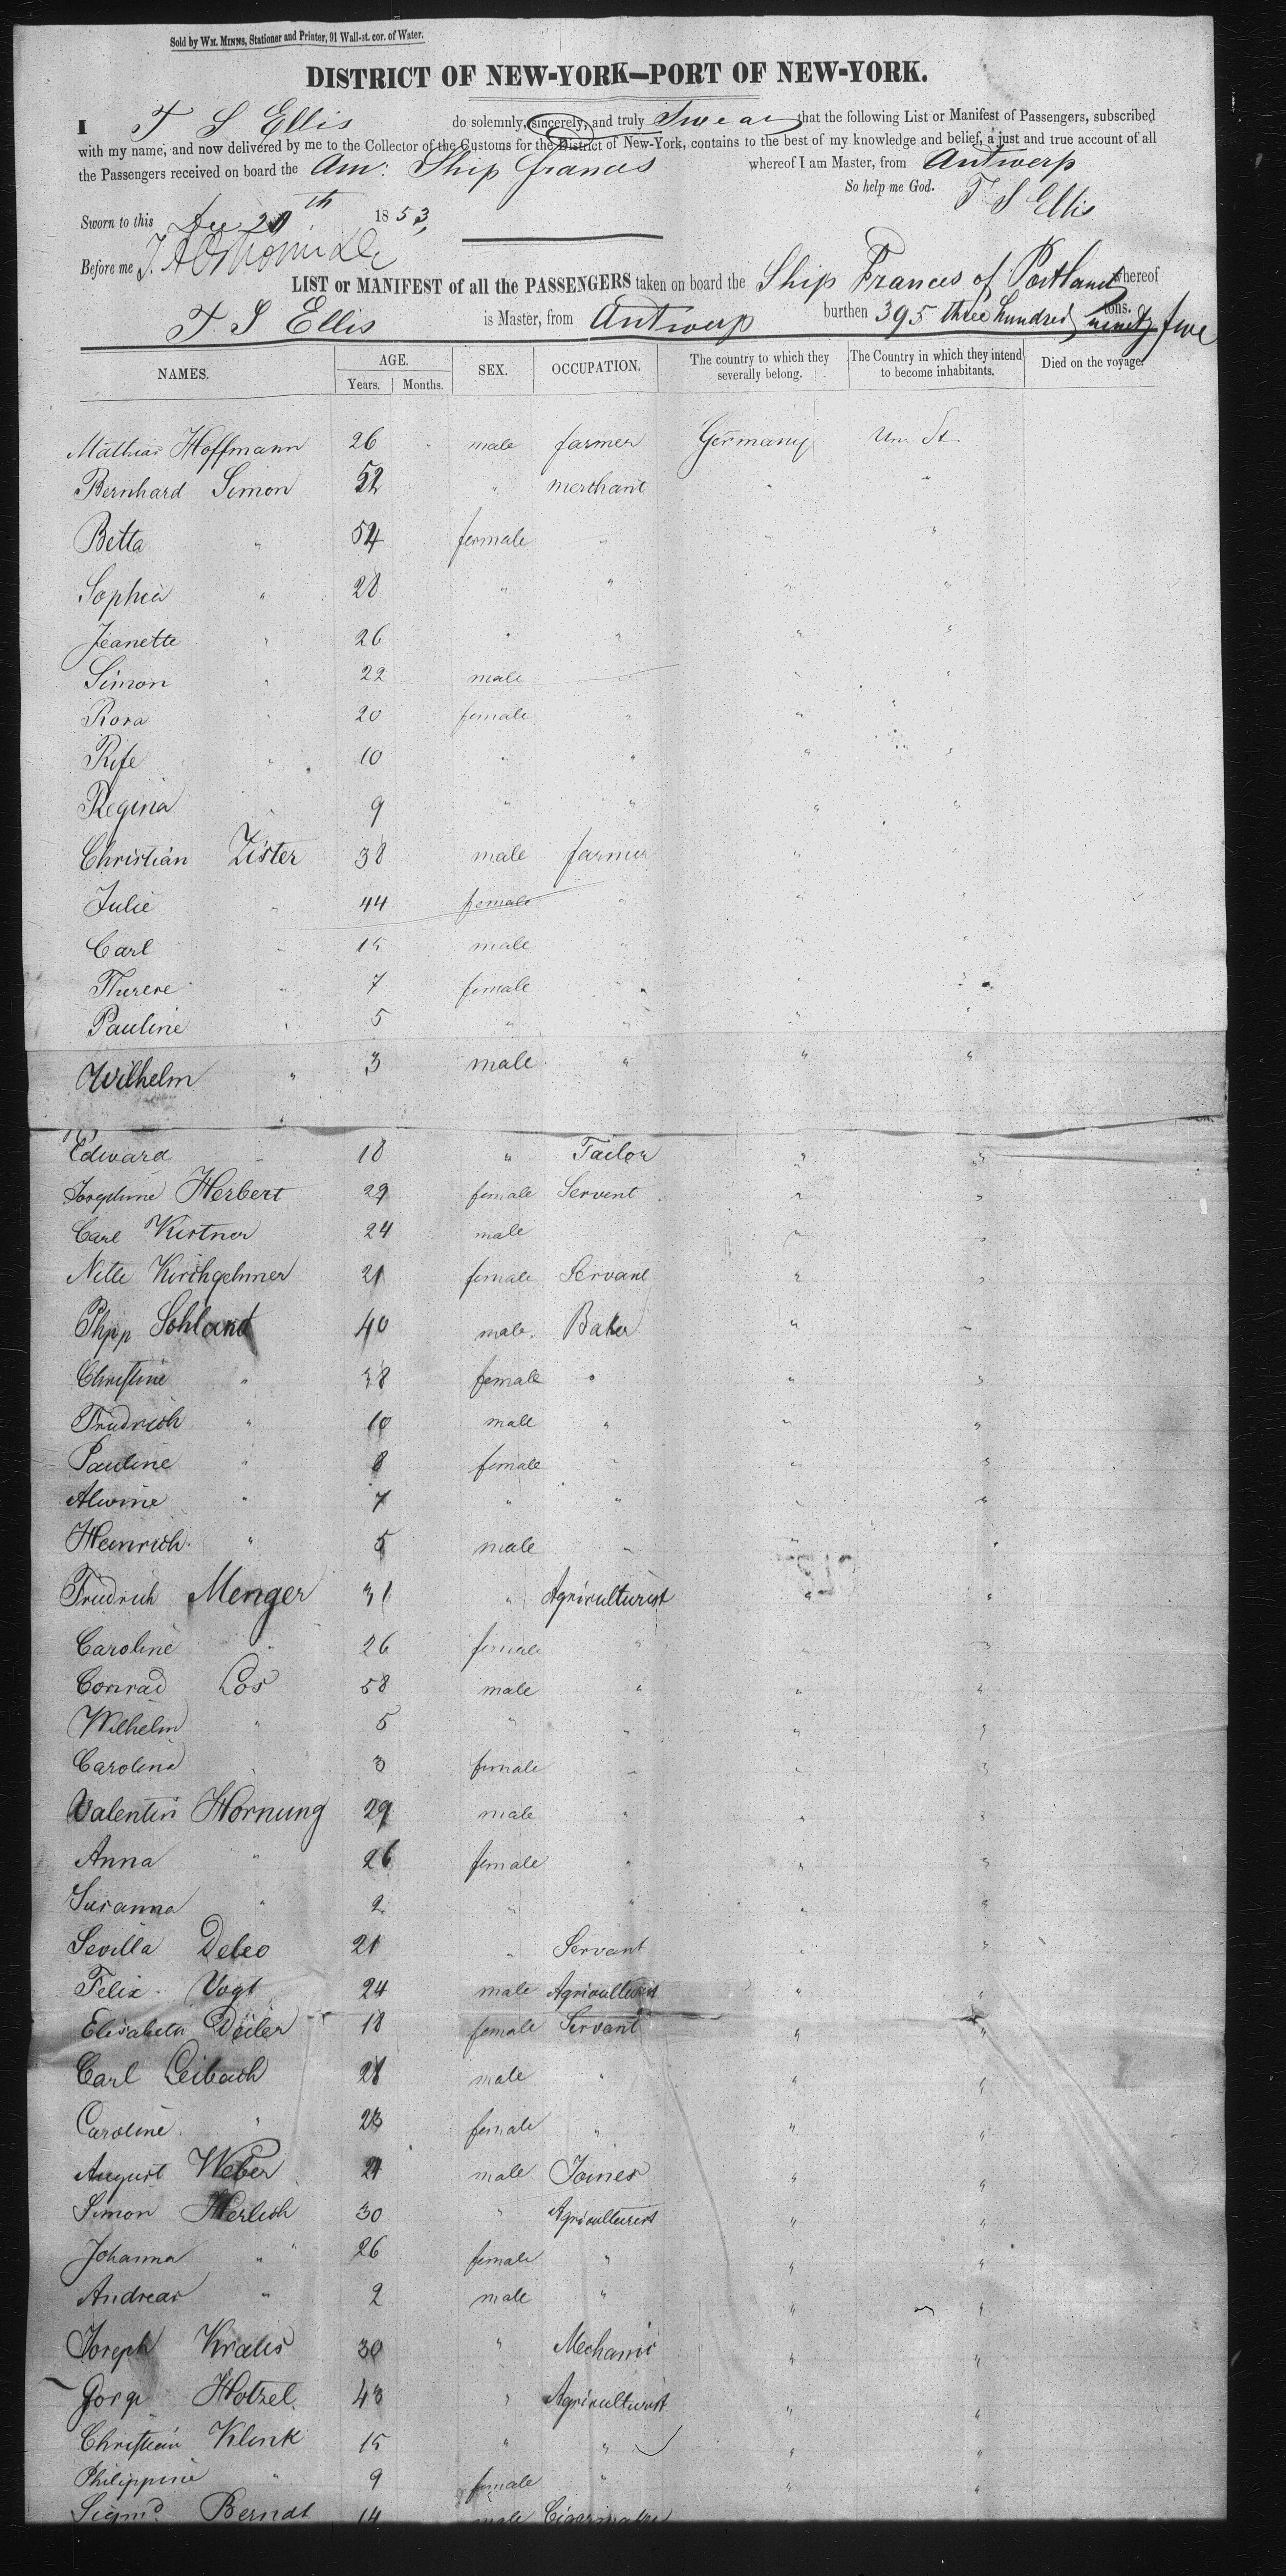 Sold by WM. MINNS, Stationer and Printer, 91 Wall-st. cor. of Water.
DISTRICT OF NEW-YORK—PORT OF NEW-YORK.
I T S Ellis do solemnly, sincerely, and truly Swear that the following List or Manifest of Passengers, subscribed
with my name, and now delivered by me to the Collector of the Customs for the District of New-York, contains to the best of my knowledge and belief, a just and true account of all
the Passengers received on board the Am: Ship frances whereof I am Master, from Antwerp
So help me God. T S Ellis
Sworn to this 20th 1853,
Before me
LIST or MANIFEST of all the PASSENGERS taken on board the Ship Frances of Portland whereof
T. S Ellis is Master, from Antwerp burthen 395 three hundred ninety five tons.
NAMES. AGE. SEX. OCCUPATION. The country to which they severally belong. The Country in which they intend to become inhabitants. Died on the voyage.
Years. Months.
Mathias Hoffmann 26 male farmer Germany Un. St.
Bernhard Simon 52 " merchant " "
Betta " 54 female " " "
Sophia " 28 " " " "
Jeanette " 26 " " " "
Simon " 22 male " " "
Rosa " 20 female " " "
Rife " 10 " " " "
Regina " 9 " " " "
Christian Zister 38 male farmer " "
Julie " 44 female " " "
Carl " 15 male " " "
Therese " 7 female " " "
Pauline " 5 " " " "
Wilhelm " 3 male " " "
Edward " 18 " Tailor " "
Josephine Herbert 29 female Servent " "
Carl Kistner 24 male " "
Nette Kirchgehner 21 female Servant " "
Phpp Schland 40 male Baker " "
Christine " 38 female " " "
Friedrich " 10 male " " "
Pauline " 8 female " " "
Alwine " 7 " " " "
Heinrich " 5 male " " "
Friedrich Menger 31 " Agriculturist " "
Caroline " 26 female " " "
Conrad Los 58 male " " "
Wilhelm " 5 " " " "
Carolina " 3 female " " "
Valentin Hornung 29 male " " "
Anna " 26 female " " "
Susanna " 2 " " " "
Sevilla Deleo 21 " Servant " "
Felix Vogt 24 male Agriculturist " "
Elisabeta Deiler 18 female Servant " "
Carl Leibach 28 male " " "
Caroline " 23 female " " "
August Weber 24 male Joiner " "
Simon Herlich 30 " Agriculturist " "
Johanna " 26 female " " "
Andreas " 2 male " " "
Joseph Kralis 30 " Mechanic " "
Gorge Hotzel 43 " Agriculturist " "
Christian Klink 15 " " " "
Philippine " 9 female " " "
Sigmd Berndt 14 male Cigarmaker